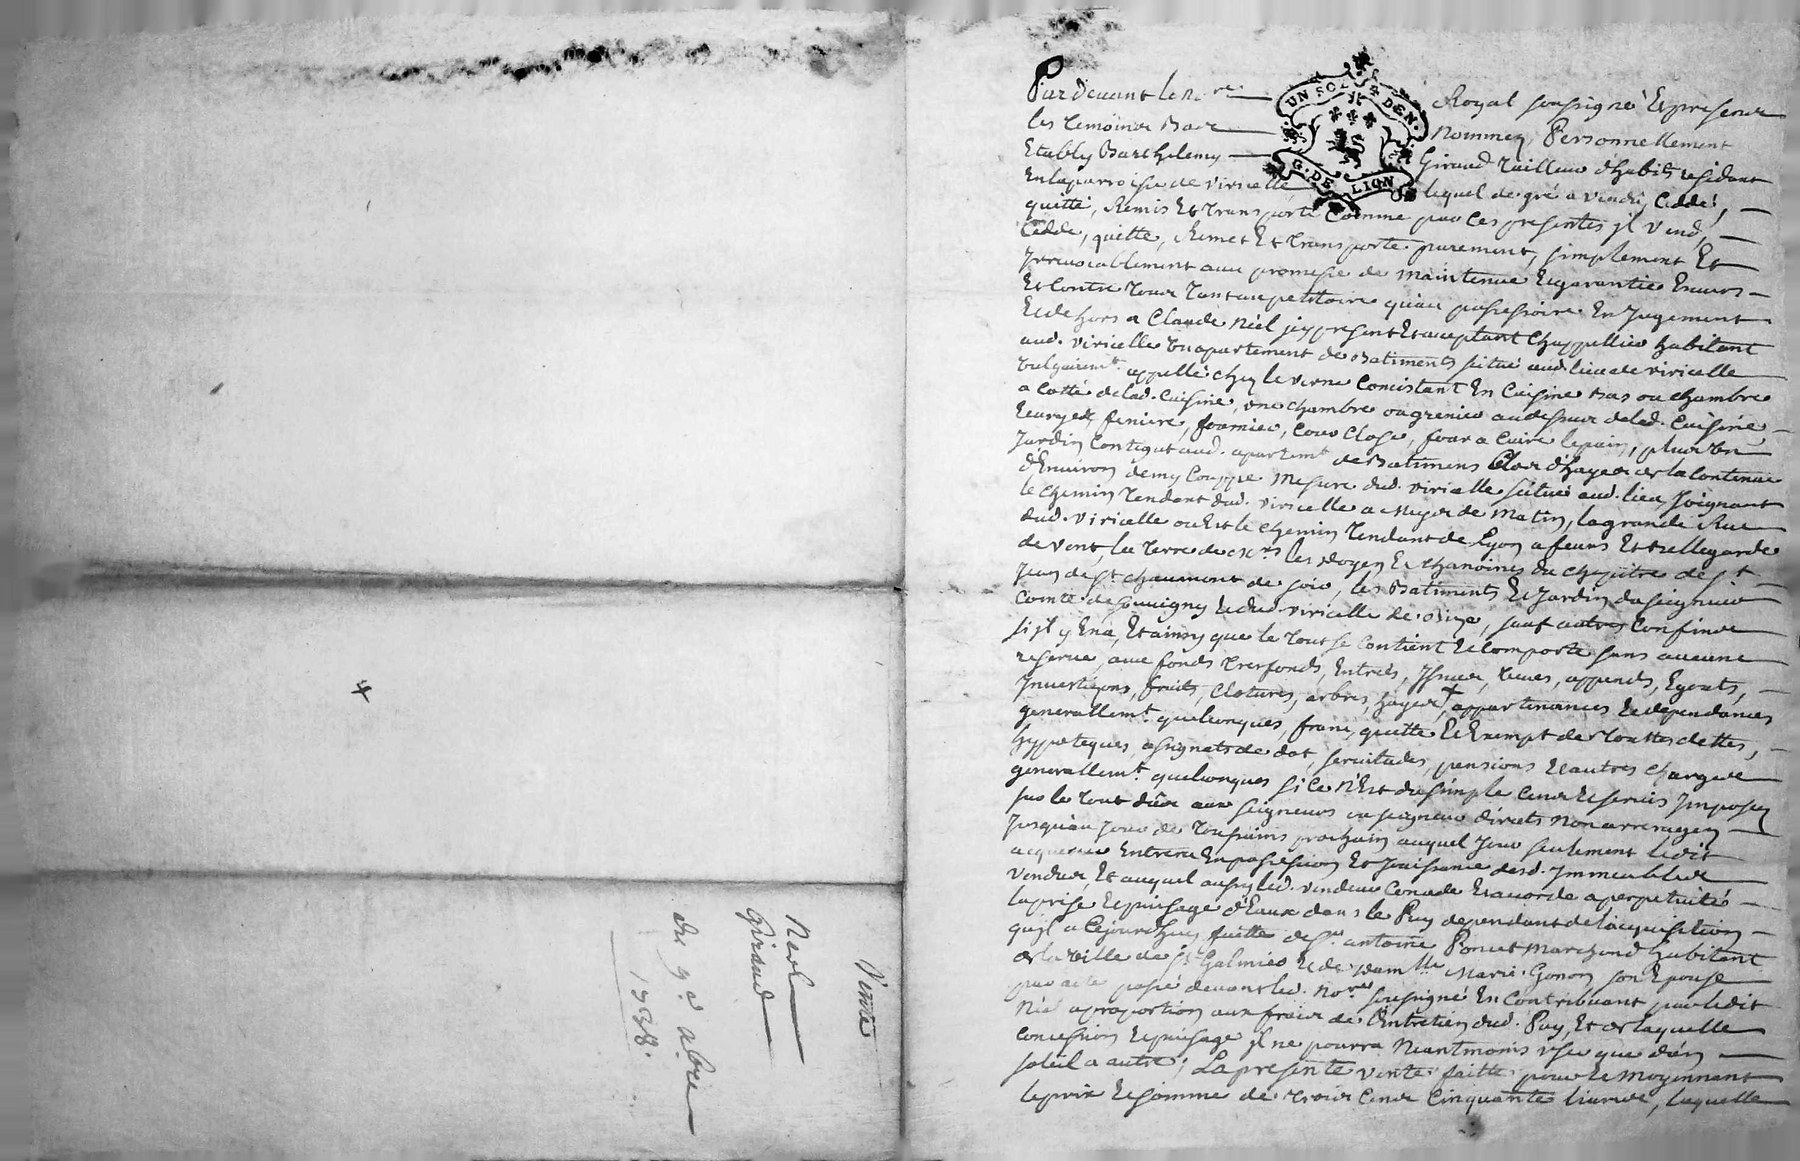 Vente
Neel
Giraud
du 9e abre
1738.
UN SOL 4 DEN.
G. DE LION
Pardevant le no.re Royal soussigné Et presence
les temoins Bas nommez, Personnellement
Etably Barthelemy Giraud tailleur d'habits residant
En la parroisse de viricelle lequel de gré a vendu, Ceddé,
quitté, Remis Et transporté Comme par ces presentes jl vend,
Cedde, quitte, Remet Et transporte purement, simplement Et
Jrrevocablement avec promesse de maintenue Et garantie Envers
Et Contre tous tant au petitoire qu'au possessoire En Jugement
Et dehors a Claude Niel jcy present Et aceptant Chappellier habitant
aud. viricelle Un apartement de Batiments situé aud. lieu de viricelle
vulgairemt. appellé chez le verne Concistant En Cuisine Bas ou chambre
a Cotté de lad. Cuisine, une chambre ou grenier au dessus de lad. Cuisine
feniere, fournier, Cour Close, four a Cuire le pain, plus Un
Jardin Contigut aud. apartemt. de Batimens Clos d'hayes de la Contenue
d'Environ demy Couppe mesure dud. viricelle situé aud. lieu, Joignant
le chemin tendant dud. viricelle a de matin, la grande Rue
dud. viricelle ou Est le chemin tendant de Lyon a feurs Et Bellegarde
de vent, la terre de mrs. les doyen Et chanoines du chapitre de st.
Jean de st. chaumont de soir, les Batiments Et Jardin du seigneur
Comte de souvigny Et dud. viricelle de Bize, sauf autres Confins
si jl y En a, Et ainsy que le tout se Contient Et Comporte sans aucune
reserve, avec fonds tresfonds, Entrées, Jssues, vues, appends, Egouts,
Jnvestizons, fruits, Clotures, arbres, hayes, appartenances Et dependances
generallemt. quelconques, franc, quitte Et Exempt de touttes dettes,
hypoteques, assignats de dot, servitudes, pensions Et autres charges
generallemt. quelconques si Ce N'Est du simple Cens Et servis Jmposez
sur le tout dûs aux seigneurs ou seigneur directs non arreragez
Jusqu'au Jour de toussains prochain auquel Jour seulement ledit
acquereur Entrera En possession Et Jouissance desd. Jmmeubles
vendus, Et auquel aussy led. vendeur Concede Et acorde a perpetuité
la prise Et puisage d'Eaux dans le Puy dependant de l'acquisition
qu'jl a Cejourdhuy faitte de sr. antoine Poncet marchand habitant
de la ville de st. Galmier Et de damlle. Marie Gonon son Epouse
par acte passé devant led. nore. soussigné En Contribuant par ledit
Niel a proportion aux frais de l'Entretien dud. Puy, Et de laquelle
concession Et puisage jl ne pourra Neantmoins user que d'un
soleil a autre; La presente vente faitte pour Et moyennant
le prix Et somme de trois Cens Cinquante livres, laquelle